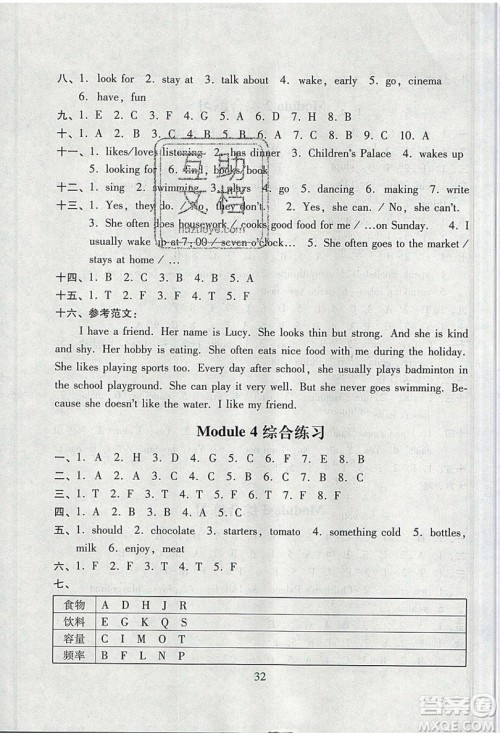 八、1. look for 2. stay at 3. talk about 4. wake, early 5. go, cinema
6. have, fun
九、1. E 2. C 3. F 4. G 5. A 6. D 7. H 8. B
十、1. A 2. B 3. C 4. B 5. C 6. B 7. B 8. C 9. C 10. A
十一、1. likes/loves listening 2. has dinner 3. Children's Palace 4. wakes up
5. looking for 6. 4in1, books/book
十二、1. sing 2. swimming 3. plays 4. go 5. dancing 6. making 7. write
十三、1. Yes, they do. / No, they don't. 2. Yes, she can. / No, she can't.
3. She often does housework / cooks good food for me / …on Sunday. 4. I
usually wake up at 7:00 / seven o'clock… 5. She often goes to the market /
stays at home / …
十四、1. B 2. C 3. B 4. C 5. B
十五、1. T 2. F 3. F 4. T 5. F
十六、参考范文：
I have a friend. Her name is Lucy. She looks thin but strong. And she is kind
and shy. Her hobby is eating. She often eats nice food with me during the holiday.
She likes playing sports too. Every day after school, she usually plays badminton in
the school playground. She can play it very well. But she never goes swimming. Be-
cause she doesn't like the water. I like my friend.
Module 4 综合练习
一、1. A 2. H 3. D 4. G 5. C 6. F 7. E 8. B
二、1. A 2. C 3. B 4. C 5. A 6. B
三、1. T 2. F 3. F 4. T 5. F 6. F
四、1. A 2. C 3. B 4. A 5. C
五、1. should 2. chocolate 3. starters, tomato 4. something cold 5. bottles,
milk 6. enjoy, meat
六、1. F 2. F 3. T 4. T 5. F
七、
食物 A D H J R
饮料 E G K Q S
容量 C I M O T
频率 B F L N P
32
互助
文档
huzlieoye.com
答案圈
MXQE.COM